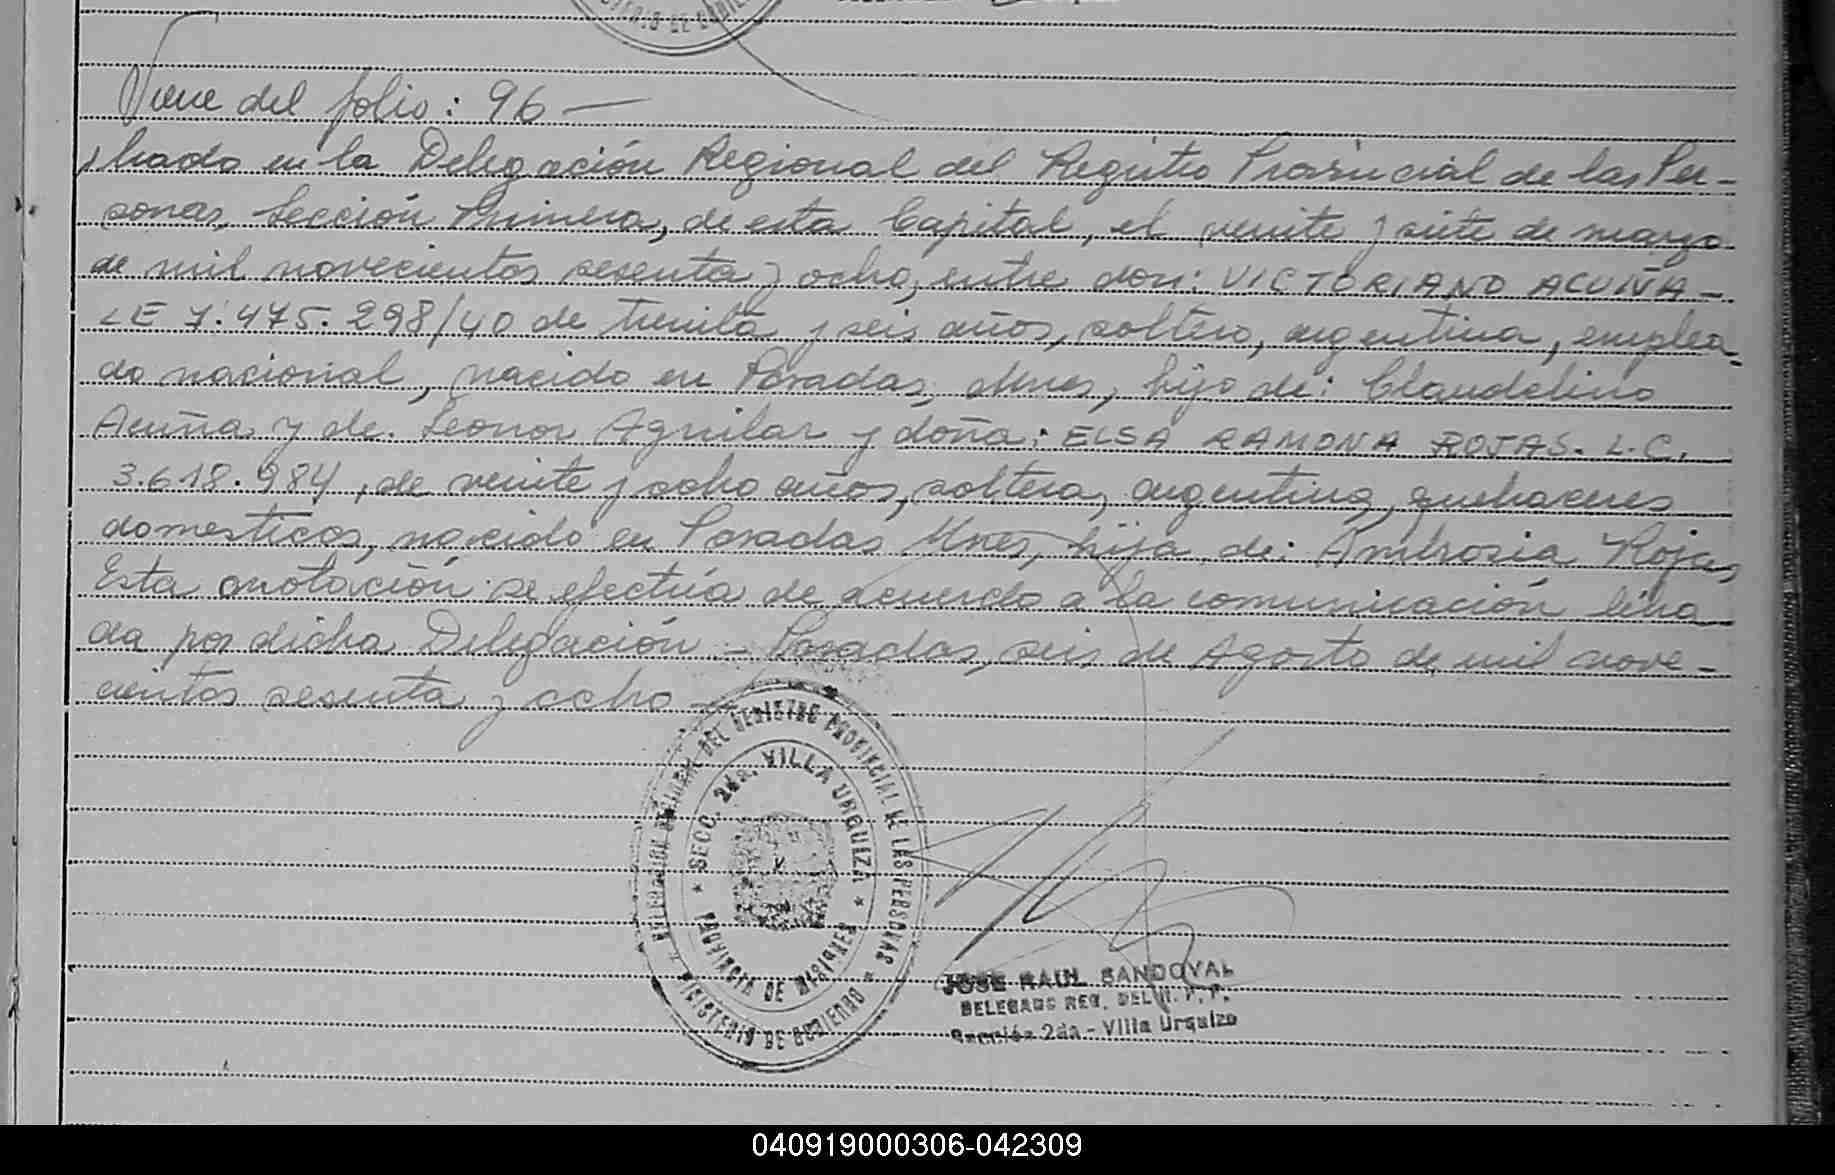 Viene del folio: 96 —
brado en la Delegación Regional del Registro Provincial de las Per-
sonas, Sección Primera, de esta Capital, el veinte y siete de marzo
de mil novecientos sesenta y ocho, entre don: VICTORIANO ACUÑA -
LE 7.475.298/40 de treinta y seis años, soltero, argentina, emplea-
do nacional, nacido en Posadas, Mnes, hijo de: Claudelino
Acuña y de: Leonor Aguilar y doña: ELSA RAMONA ROJAS. L.C.
3.618.984, de veinte y ocho años, soltera, argentina, quehaceres
domesticos, nacido en Posadas Mnes, hija de: Ambrosia Rojas
Esta anotación se efectúa de acuerdo a la comunicación
da por dicha Delegación - Posadas, seis de Agosto de mil nove-
cientos sesenta y ocho -
DEL REGISTRO PROVINCIAL DE LAS PERSONAS
SECC. 2da. VILLA URQUIZA
PROVINCIA DE MISIONES
MINISTERIO DE GOBIERNO
JOSE RAUL SANDOVAL
DELEGADO REG. DEL R. P. P.
Sección 2da - Villa Urquiza
040919000306-042309